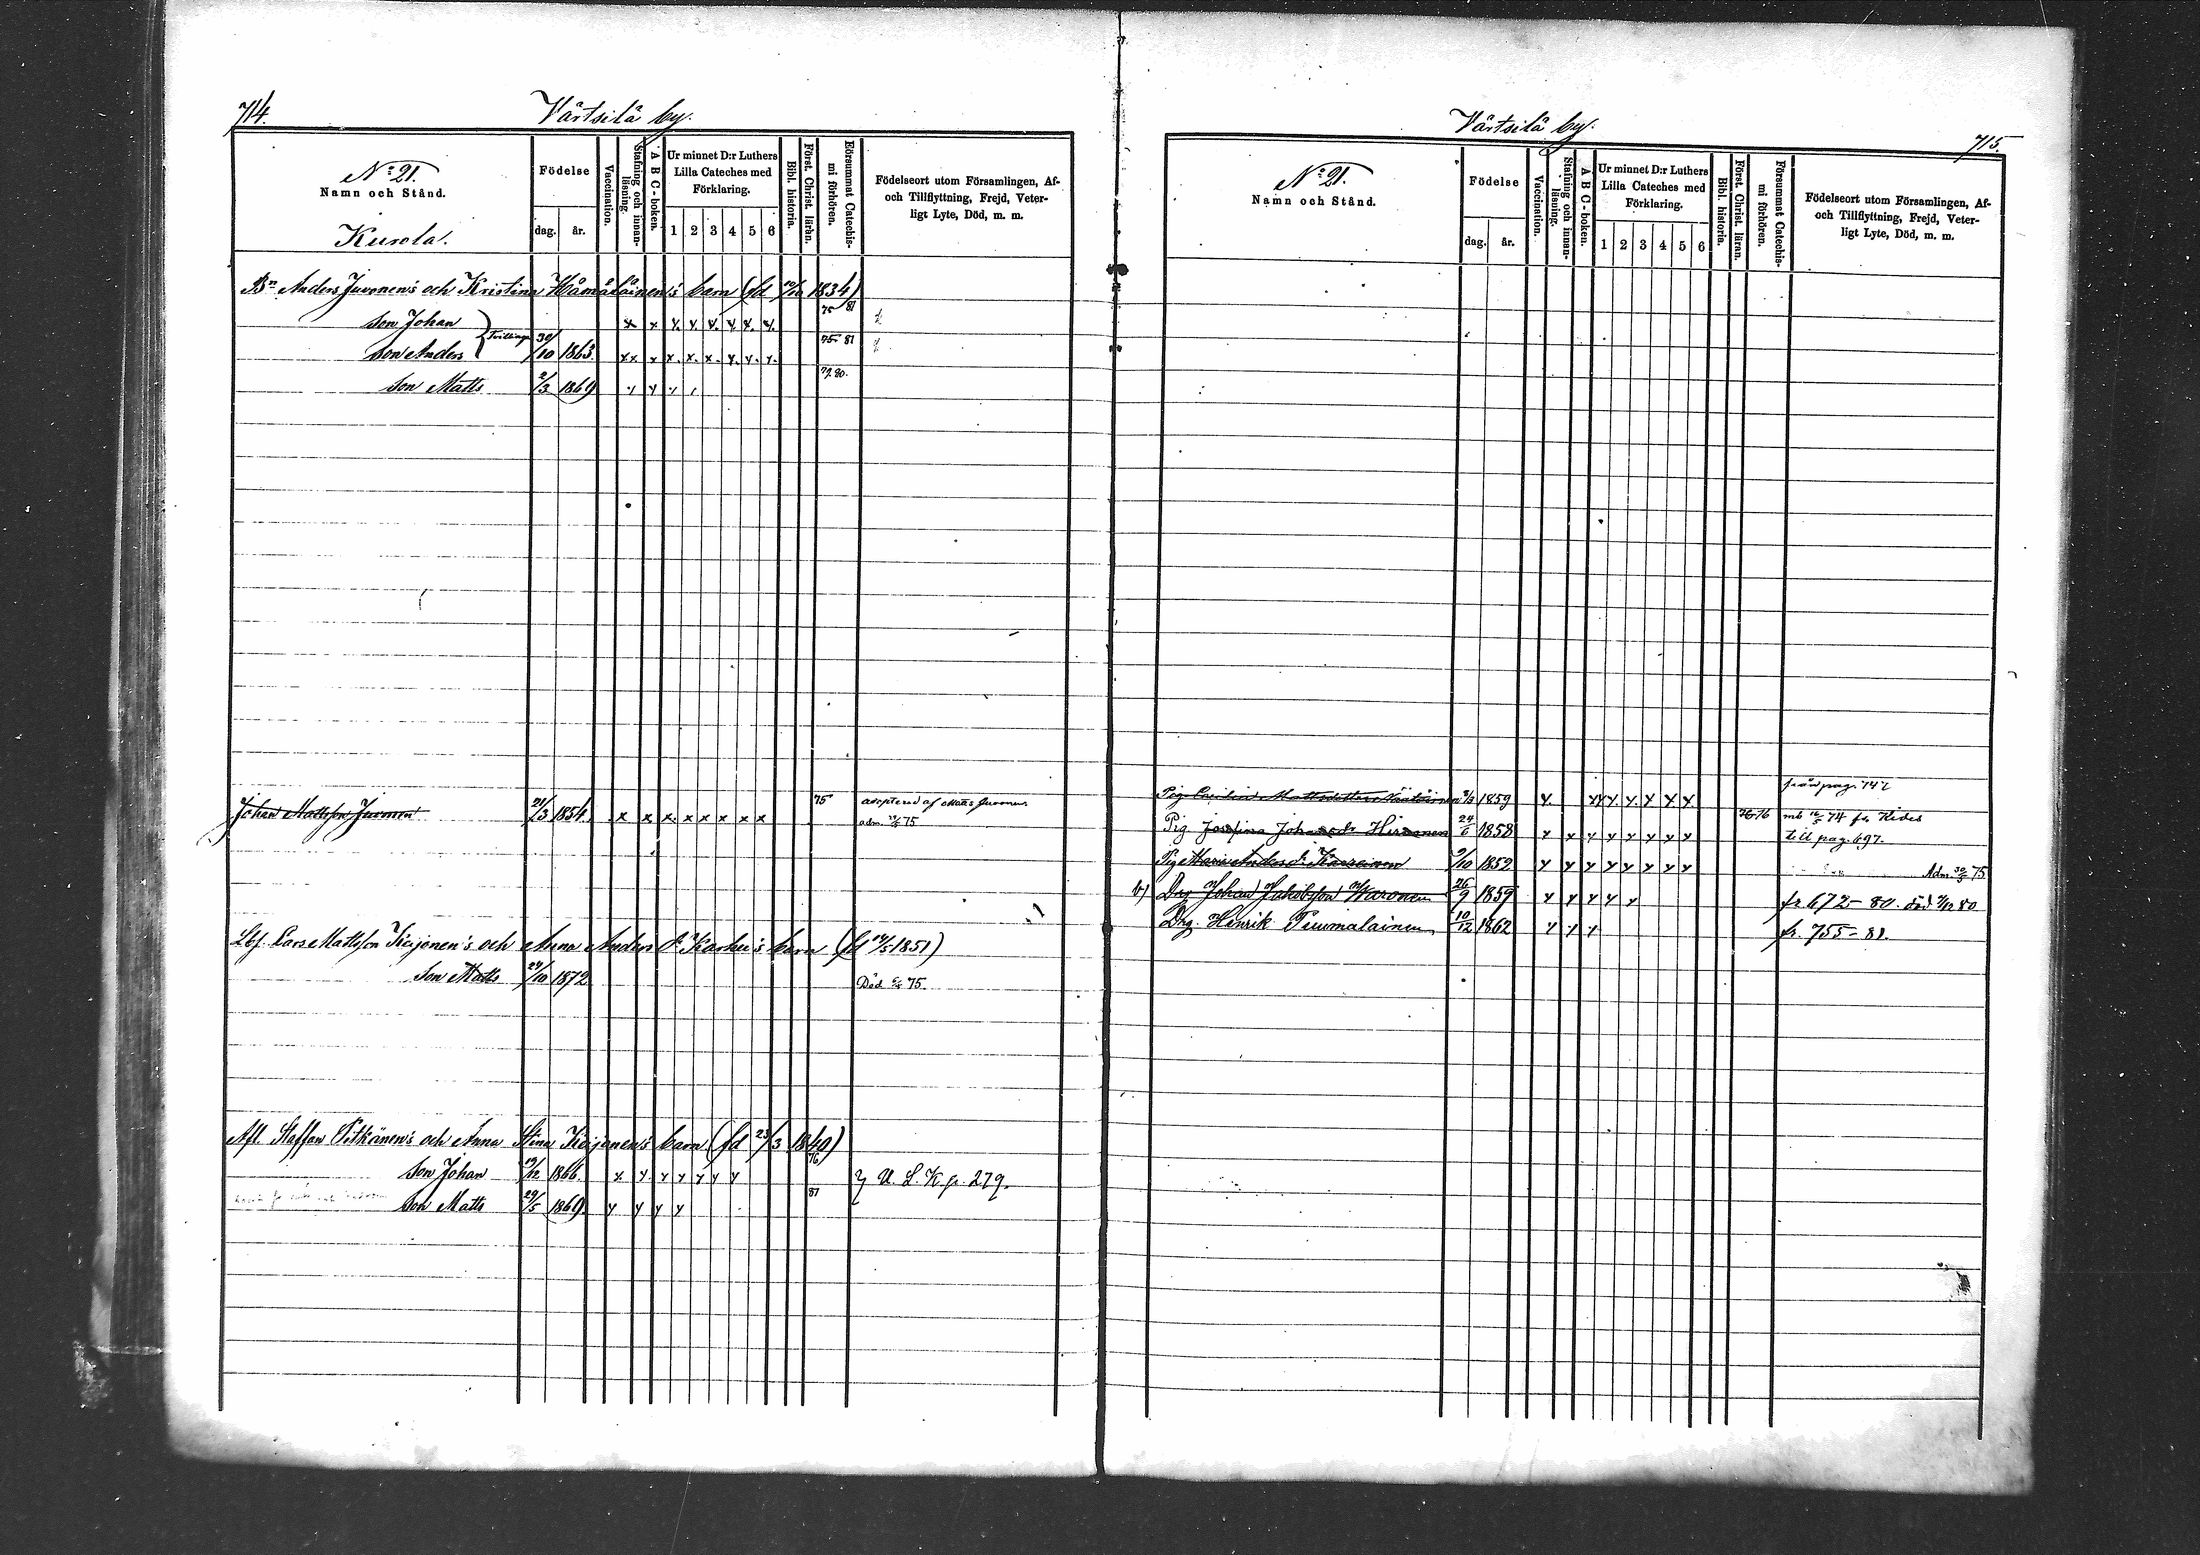 714.
Värtsilä by.
No 21.
Namn och Stånd.
Kurola.
Födelse
dag. år.
Vaccination.
Stafning och innan-
läsning.
A B C-boken.
Ur minnet D:r Luthers
Lilla Cateches med
Förklaring.
1 2 3 4 5 6
Bibl. historia.
Först. Christ. läran.
Försummat Catechis-
mi förhören.
Födelseort utom Församlingen, Af-
och Tillflyttning, Frejd, Veter-
ligt Lyte, Död, m. m.
Bn Anders Juvonen's och Kristina Hämäläinen's barn (fd 1834)
Son Johan x x x x x x x 75 81
Son Anders Tvillingar 30/10 1863. xx x x x x x x 75 81
Son Matts 2/3 1869 79 80.
Johan Mattsson Juvonen 21/3 1854. x x x x x x x x 75 adopterad af Matts Juvonen
adm. 75
Lbf. Lars Mattsson Keijonen's och Anna Anders d. Karhu's barn (fd 14/5 1851)
Son Matts 24/10 1872 Död 75.
Aft. Staffan Pitkänen's och Anna Stina Keijonen's barn (fd 23/3 1840)
Son Johan 19/12 1866. x x x x x x x 76 U. L. K. p. 279.
Son Matts 29/5 1869. x x x x 81
Värtsilä by.
715.
No 21.
Namn och Stånd.
Födelse
dag. år.
Vaccination.
Stafning och innan-
läsning.
A B C-boken.
Ur minnet D:r Luthers
Lilla Cateches med
Förklaring.
1 2 3 4 5 6
Bibl. historia.
Först. Christ. läran.
Försummat Catechis-
mi förhören.
Födelseort utom Församlingen, Af-
och Tillflyttning, Frejd, Veter-
ligt Lyte, Död, m. m.
från pag. 742
Pig. Mattsdotter 1859 x x x x x x x x
Pig Josefina Johansdr Hirvonen 24/6 1858 x x x x x x x x 76 mb 74 fr Kides
till pag. 697.
Pig Maria Anders d. 9/10 1852 x x x x x x x x Adm. 75
b) Drg Johan Jakobsson 26/9 1859 x x x x x fr 672 - 80. död 80
Drg Henrik Tuumalainen 10/12 1862 x x x fr. 755 - 81.